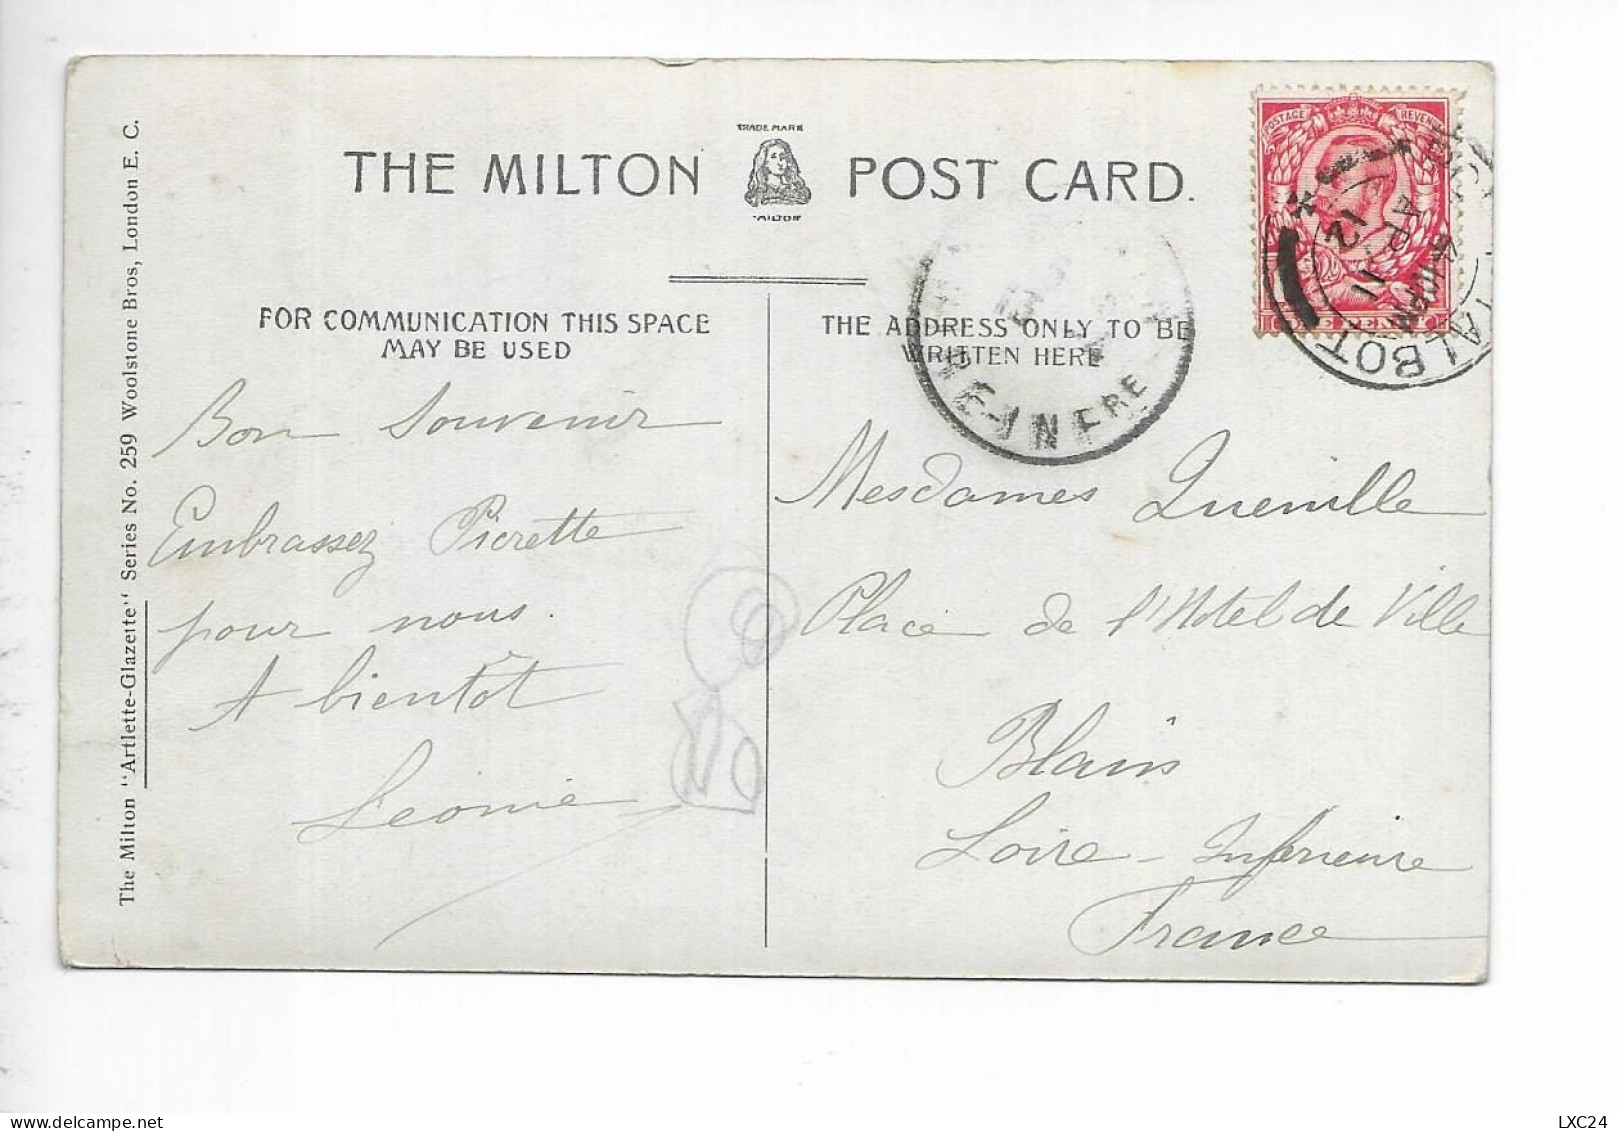 TRADE MARK
THE MILTON POST CARD.
"MILTON"
POSTAGE REVENUE
TALBOT
AP 11
12
FOR COMMUNICATION THIS SPACE
MAY BE USED
THE ADDRESS ONLY TO BE
WRITTEN HERE
INFRE
Bon Souvenir
Embrassez Pierette
pour nous.
A bientôt
Leonie
Mesdames Quenille
Place de l'Hotel de Ville
Blain
Loire - Inferieure
France
The Milton "Artlette-Glazette" Series No. 259 Woolstone Bros, London E. C.
LXC24